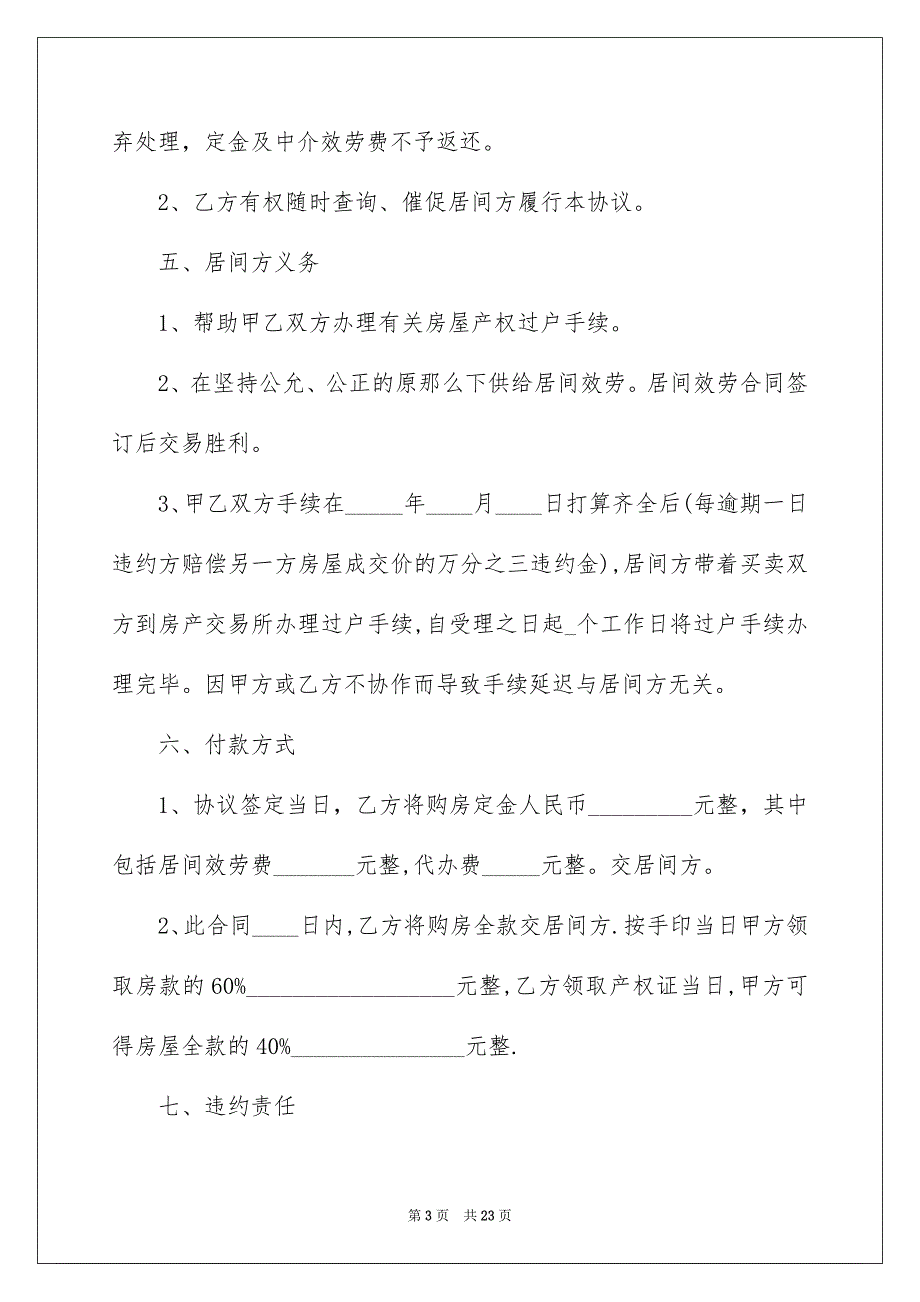 弃处理，定金及中介效劳费不予返还。
2、乙方有权随时查询、催促居间方履行本协议。
五、居间方义务
1、帮助甲乙双方办理有关房屋产权过户手续。
2、在坚持公允、公正的原那么下供给居间效劳。居间效劳合同签
订后交易胜利。
3、甲乙双方手续在_____年____月____日打算齐全后(每逾期一日
违约方赔偿另一方房屋成交价的万分之三违约金),居间方带着买卖双
方到房产交易所办理过户手续,自受理之日起_个工作日将过户手续办
理完毕。因甲方或乙方不协作而导致手续延迟与居间方无关。
六、付款方式
1、协议签定当日，乙方将购房定金人民币_________元整，其中
包括居间效劳费_______元整,代办费_____元整。交居间方。
2、此合同____日内,乙方将购房全款交居间方.按手印当日甲方领
取房款的60%__________________元整,乙方领取产权证当日,甲方可
得房屋全款的40%_______________元整.
七、违约责任
第 3 页 共 23 页